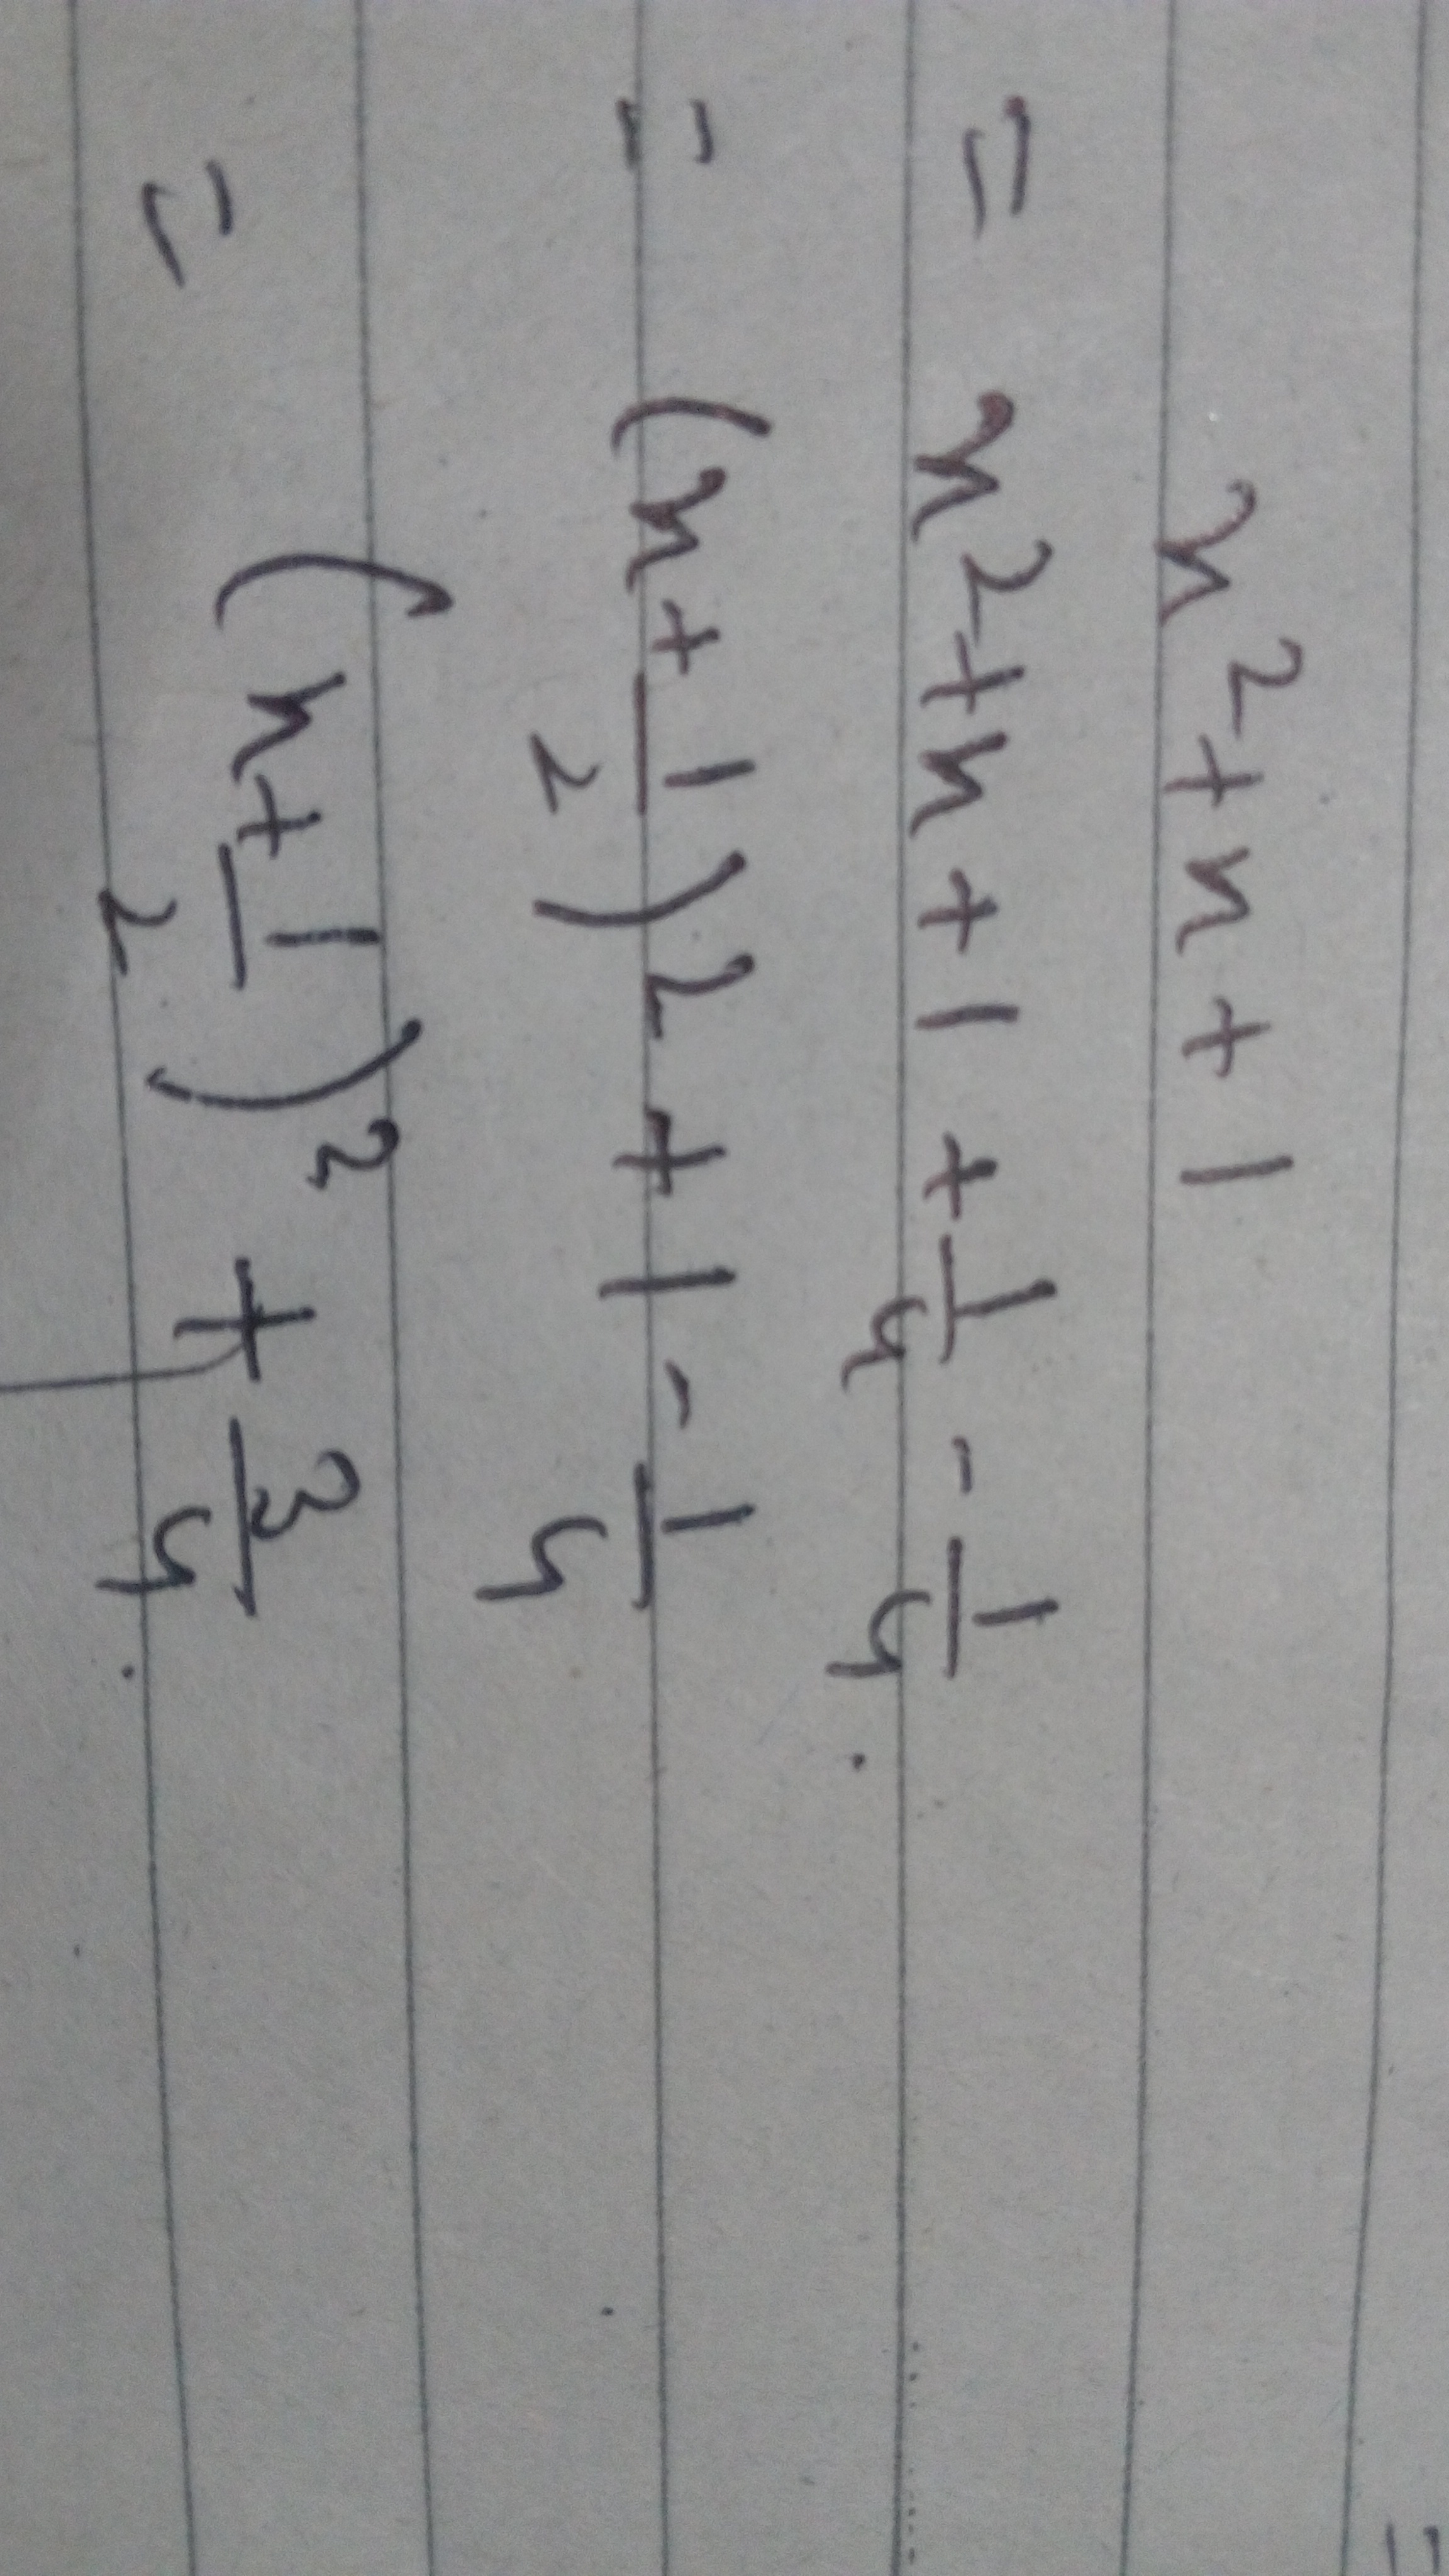 x² + x + 1
= x² + x + 1 + 1/4 - 1/4
= (x + 1/2)² + 1 - 1/4
= (x + 1/2)² + 3/4